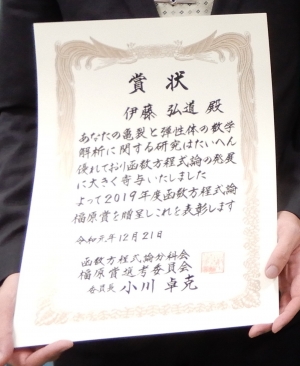 賞状
伊藤 弘道 殿
あなたの亀裂と弾性体の数学
解析に関する研究はたいへん
優れており函数方程式論の発展
に大きく寄与いたしました
よって2019年度函数方程式論
福原賞を贈呈しこれを表彰します
令和元年12月21日
函数方程式論分科会
福原賞選考委員会
委員長 小川 卓克